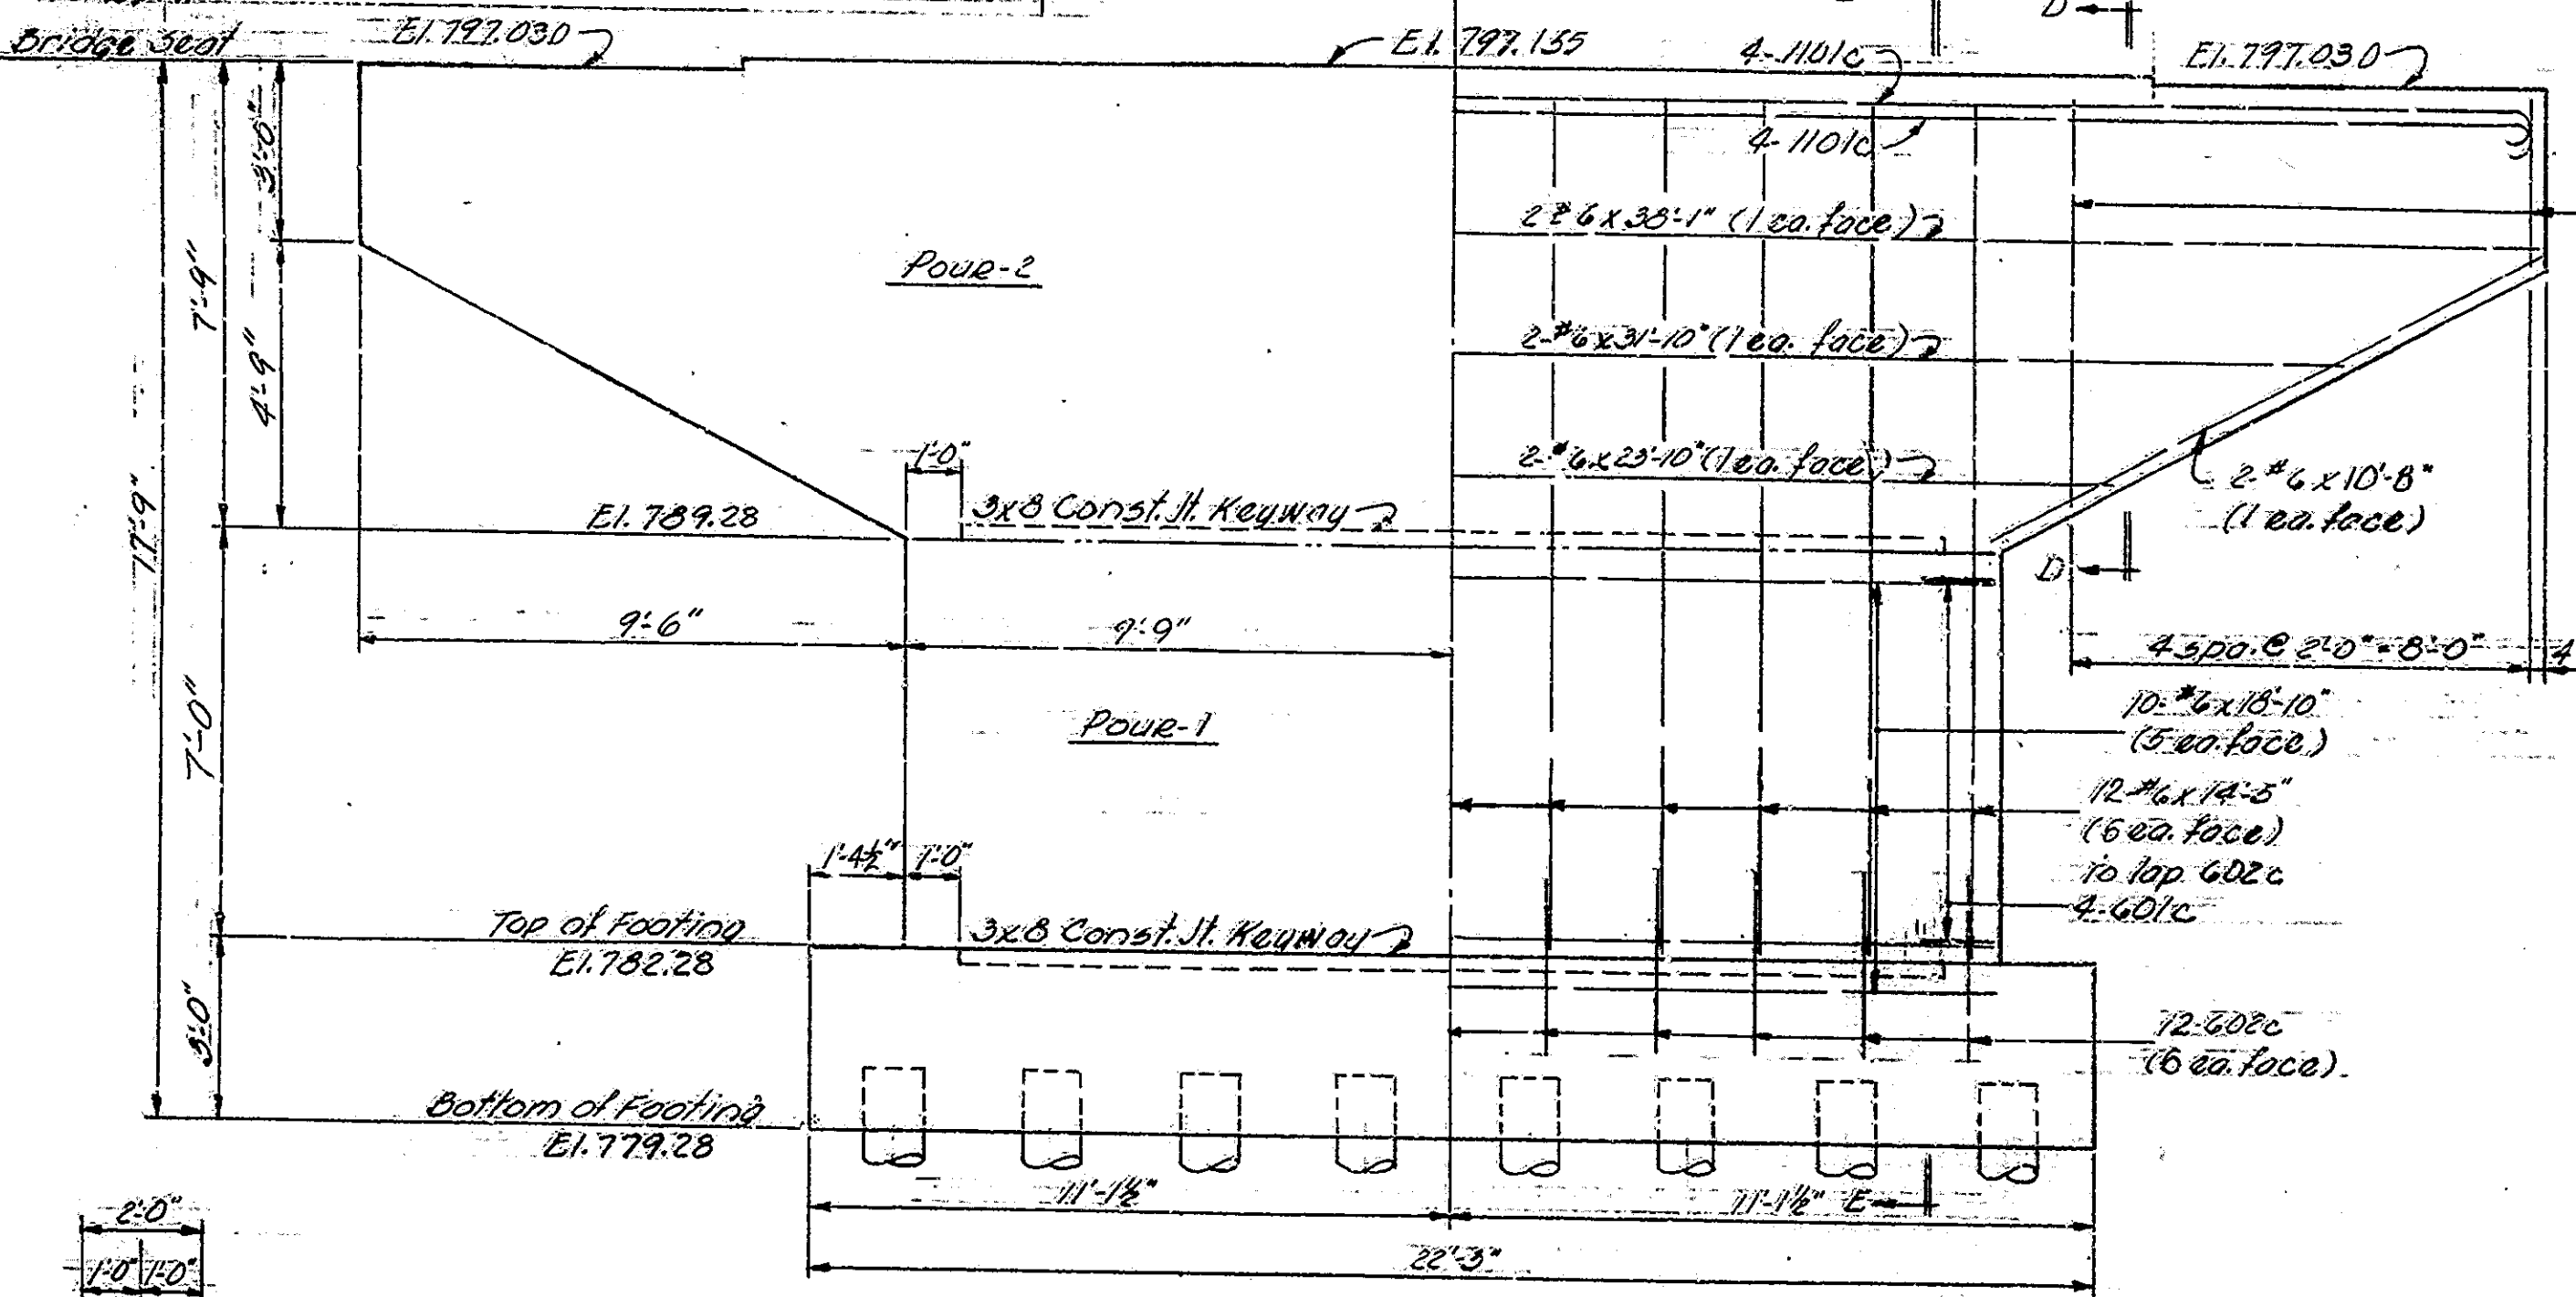 Bridge Seat
El. 797.030
El. 797.155
4-1101c
D
El. 797.030
4-1101c
3'-0"
7'-9"
4'-9"
17'-9"
2-#6 x 38'-1" (1 ea. face)
Pour-2
2-#6 x 31'-10" (1 ea. face)
2-#6 x 23'-10" (1 ea. face)
2-#6 x 10'-8"
(1 ea. face)
1'-0"
El. 789.28
3x8 Const. Jt. Keyway
D
9'-6"
9'-9"
4 spa. @ 2'-0" = 8'-0"
4
7'-0"
Pour-1
10-#6 x 18'-10"
(5 ea. face)
12-#6 x 14'-5"
(6 ea. face)
to lap 602c
4-601c
1'-4½"
1'-0"
Top of Footing
El. 782.28
3x8 Const. Jt. Keyway
3'-0"
12-602c
(6 ea. face)
Bottom of Footing
El. 779.28
11'-1½"
11'-1½"
E
22'-3"
2'-0"
1'-0"
1'-0"